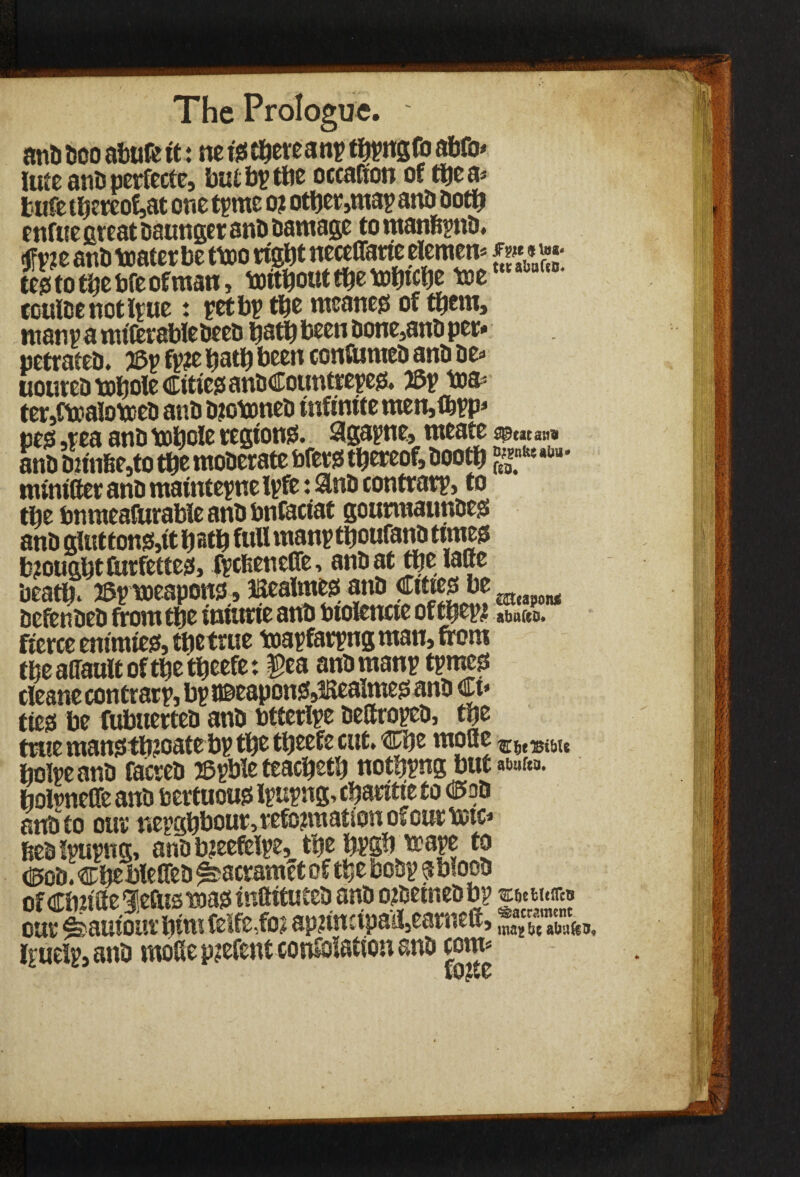 The Prologue.
and doo abuse it: ne is there any thyng so abso-
lute and perfecte, but by the occasion of the a-
buse thereof, at one tyme or other, may and doth
ensue great daunger and damage to mankynd.
Fyre and water be two right necessarie elemen-
tes to the vse of man, without the whiche we
Fyre & wa-
ter abused.
coulde not lyue: yet by the meanes of them,
many a miserable deed hath been done, and per-
petrated. By fyre hath been consumed and de-
uoured whole Cities and Countreyes. By wa-
ter, swalowed and drowned infinite men, shyp-
pes, yea and whole regions. Agayne, meate
and drinke, to the moderate vsers thereof, dooth
Meat and
drynke abu-
sed.
minister and mainteyne lyfe: And contrary, to
the vnmeasurable and vnsaciat gourmaundes
and gluttons, it hath full many thousand times
brought surfettes, syckenesse, and at the laste
death. By weapons, Realmes and Cities be
defended from the iniurie and violencie of theyr
Weapons
abused.
fierce enimies, the true wayfaryng man, from
the assault of the theefe: Yea and many tymes
cleane contrary, by weapons, Realmes and Ci-
ties be subuerted and vtterlye destroyed, the
true mans throate by the theefe cut. The moste
holye and sacred Byble teacheth nothyng but
The Bible
abused.
holynesse and vertuous lyuyng, charitie to God
and to our neyghbour, reformation of our wic-
ked lyuyng, and breefelye, the hygh waye to
God. The blessed Sacramēt of the body & blood
of Christe Jesus was instituted and ordeined by
our Sauiour him selfe, for a principall, earnest,
The blessed
Sacrament
may be abused.
lyuely, and moste present consolation and com-
forte